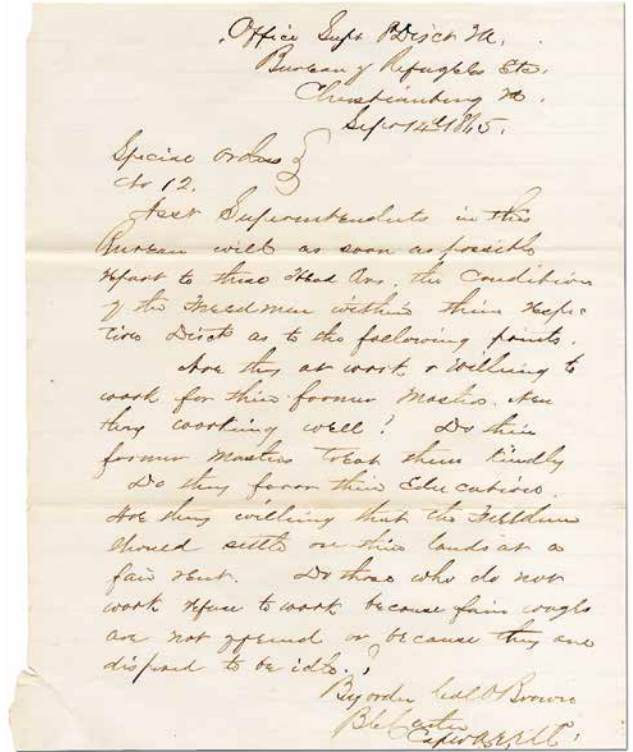 Office Supt 8 Disct Va.
Bureau of Refugees Etc.
Christianburg Va.
Sept 14th 1865.
Special Orders
No 12.
Asst Superintendents in this
Bureau will as soon as possible
report to these Head Qrs. the Condition
of the Freedmen within their respec
tive Disct as to the following points.
Are they at work or willing to
work for their former Masters. Are
they working well? Do their
former Masters treat them kindly
Do they favor their Education.
Are they willing that the Freedmen
should settle on their lands at a
fair rent. Do those who do not
work refuse to work because fair wages
are not offered or because they are
disposed to be idle.?
By order Col O Brown
B C Carter
Capt